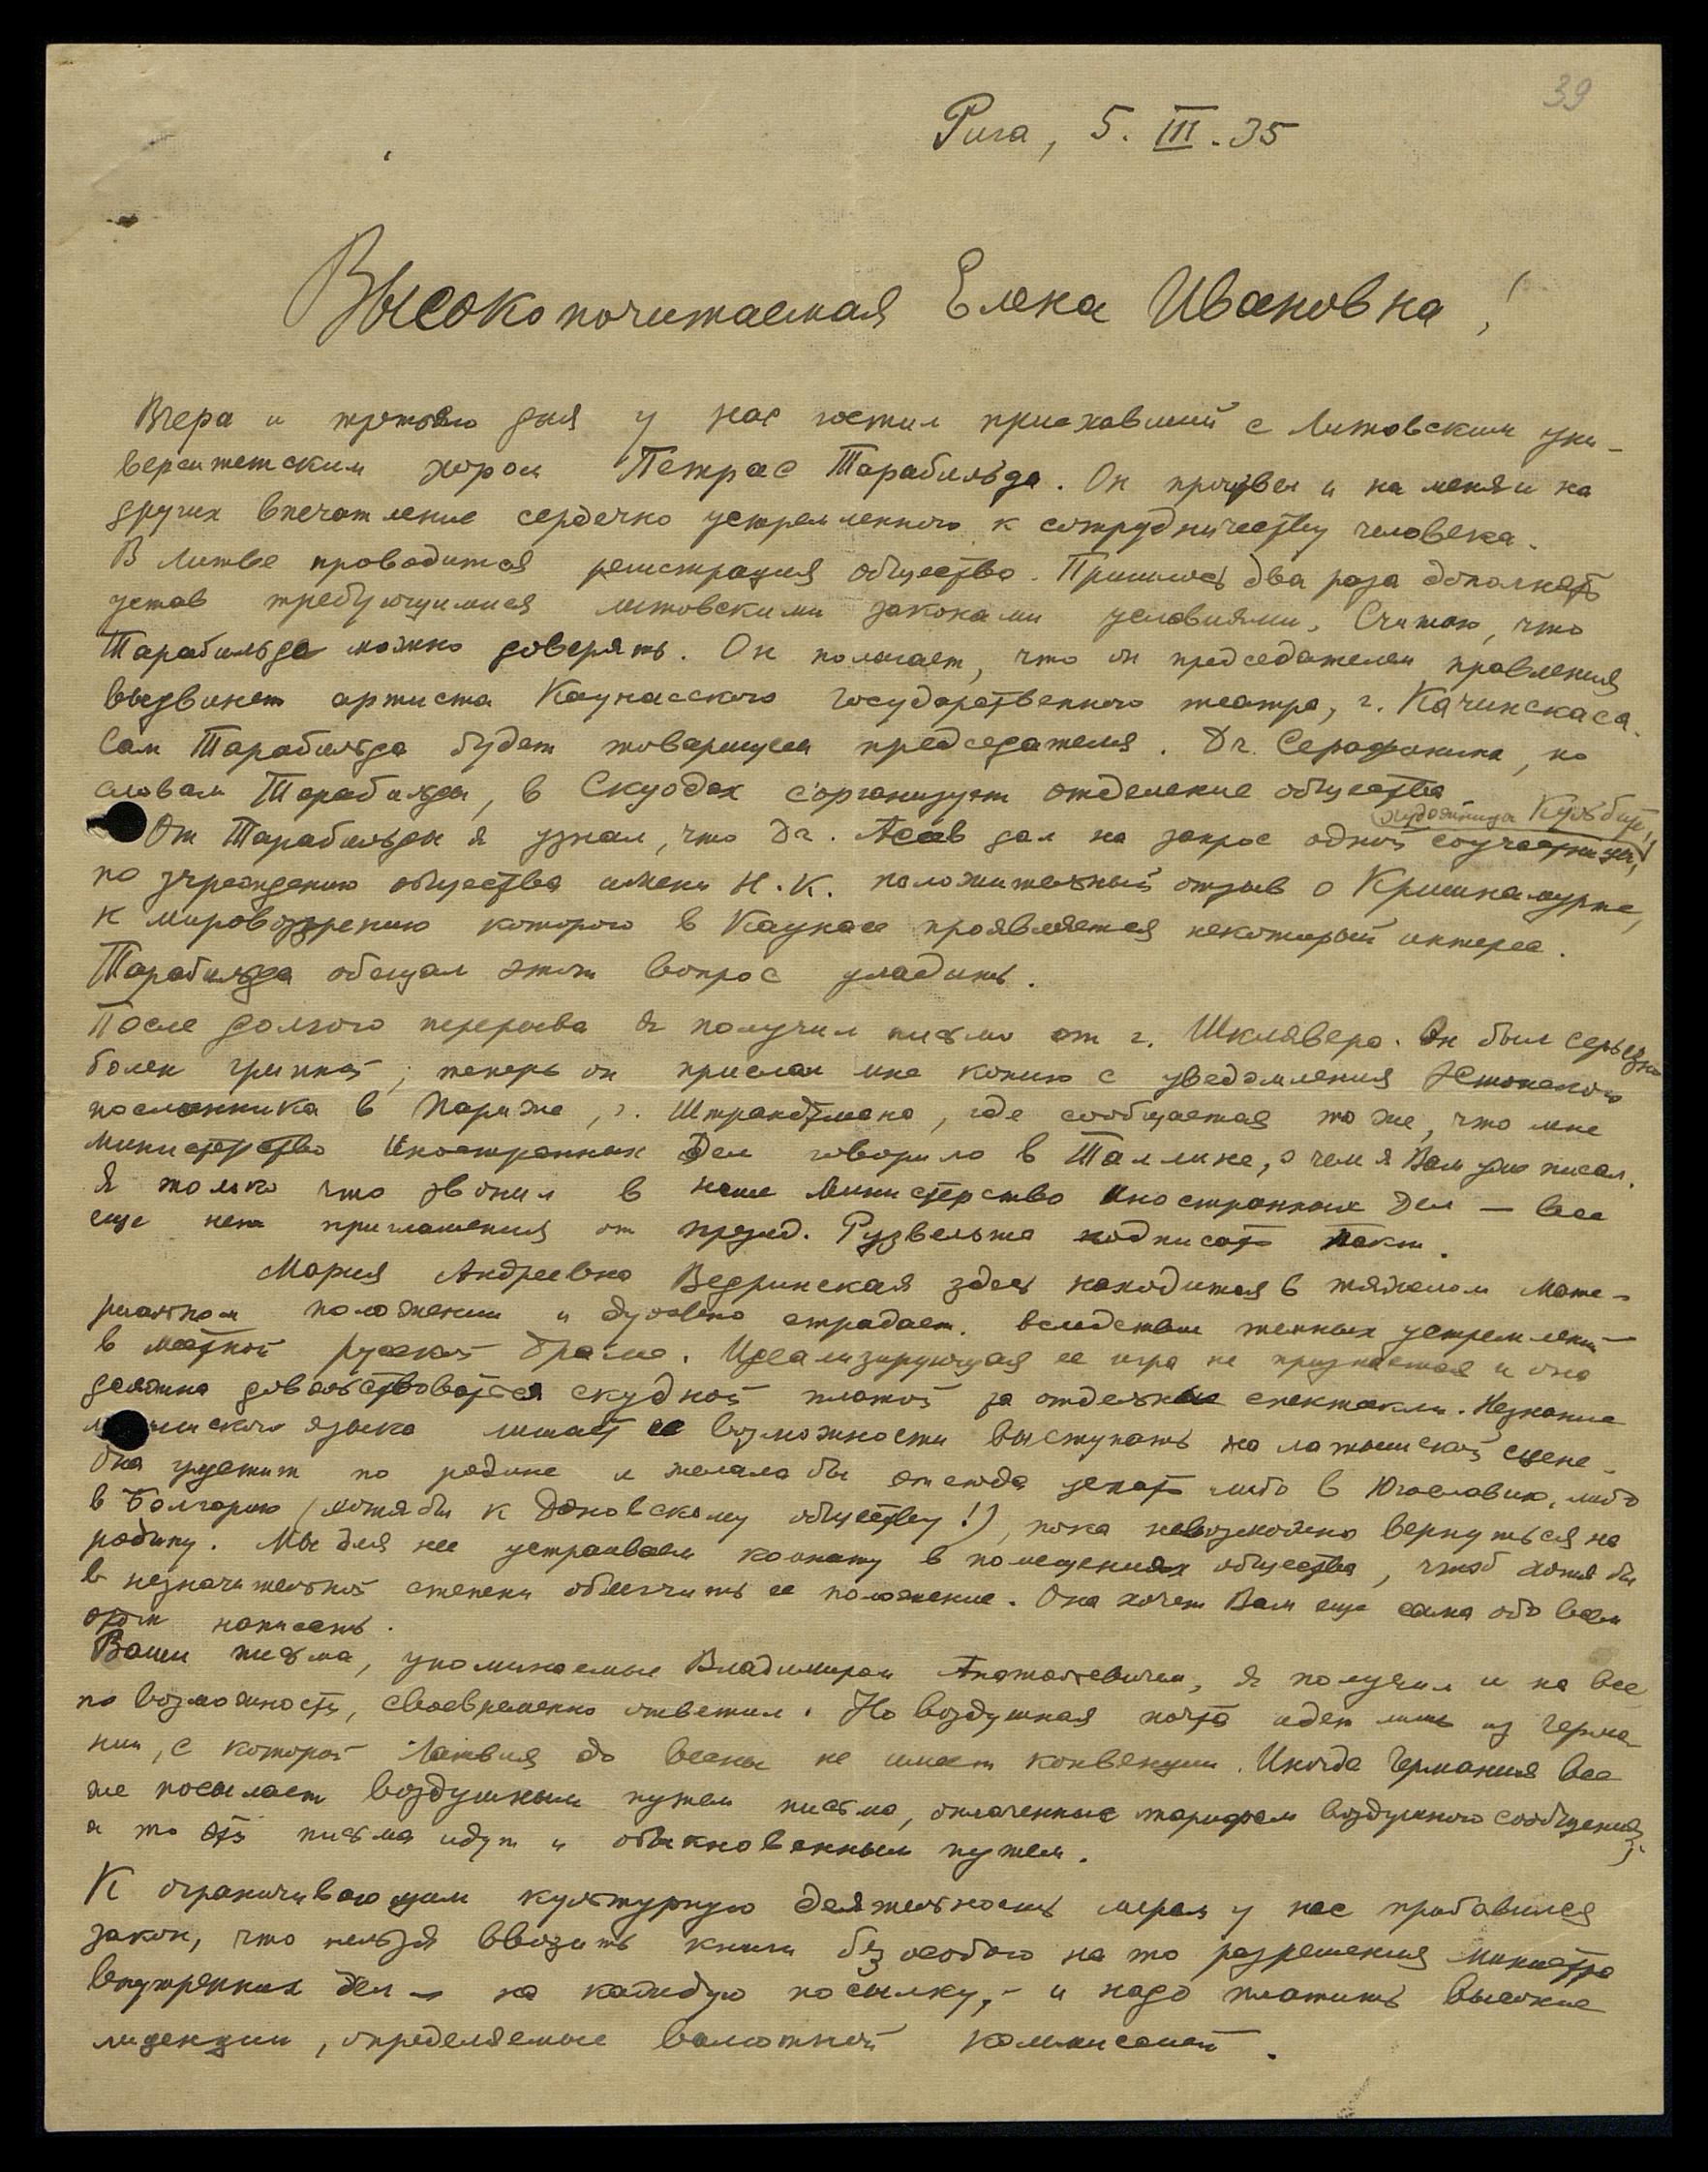 39
Рига, 5. III. 35
Высокопочитаемая Елена Ивановна!
Вчера и третьяго дня у нас гостил приехавший с Литовским уни-
верситетским хором Петрас Тарабильда. Он произвел и на меня и на
других впечатление сердечно устремленного к сотрудничеству человека.
В Литве проводится регистрация общества. Пришлось два раза дополнять
устав требующимися литовскими законами условиями. Считаю, что
Тарабильде можно доверять. Он полагает, что он председателем правления
выдвинет артиста Каунасского государственного театра, г. Качинскаса.
Сам Тарабильда будет товарищем председателя. Dr. Серафинина, по
словам Тарабильды, в Скуодах сорганизует отделение общества
(художница Кульбит)
От Тарабильды я узнал, что Dr. Асеев дал на запрос одной соучастницы,
по учреждению общества имени Н.К. положительный отзыв о Кришнамурте,
к мировоззрению которого в Каунасе проявляется некоторый интерес.
Тарабильда обещал этот вопрос уладить.
После долгого перерыва я получил письмо от г. Шклявера. Он был серьезно
болен гриппой; теперь он прислал мне копию с уведомления Эстонского
посланника в Париже, г. Штрандтмана, где сообщается то же, что мне
Министерство Иностранных Дел говорило в Таллине, о чем я Вам уже писал.
Я только что звонил в наше Министерство Иностранных Дел — все
еще нет приглашения от презид. Рузвельта подписать Пакт.
Мария Андреевна Ведринская здесь находится в тяжелом мате-
риальном положении и духовно страдает, вследствии темных устремлений
в местной русской драме. Идеализирующая ее игра не признается и она
должна довольствоваться скудной платой за отдельные спектакли. Незнание
латышского языка лишает ее возможности выступать на латышской сцене.
Она грустит по родине и желала бы отсюда уехать либо в Югославию, либо
в Болгарию (хотя бы к Доновскому обществу!), пока невозможно вернуться на
родину. Мы для нее устраиваем комнату в помещениях общества, чтоб хотя бы
в незначительной степени облегчить ее положение. Она хочет Вам еще сама обо всем
этом написать.
Ваши письма, упоминаемые Владимиром Анатольевичем, я получил и на все
по возможности, своевременно ответил. Но воздушная почта идет лишь из Герма-
нии, с которой Латвия до весны не имеет конвенции. Иногда Германия все
же посылает воздушным путем письма, оплаченные тарифом воздушного сообщения;
а то эти письма идут и обыкновенным путем.
К ограничивающим культурную деятельность мерам у нас прибавился
закон, что нельзя ввозить книги без особого на то разрешения министра
внутренних дел — на каждую посылку, - и надо платить высокие
лицензии, определяемые валютной комиссией.